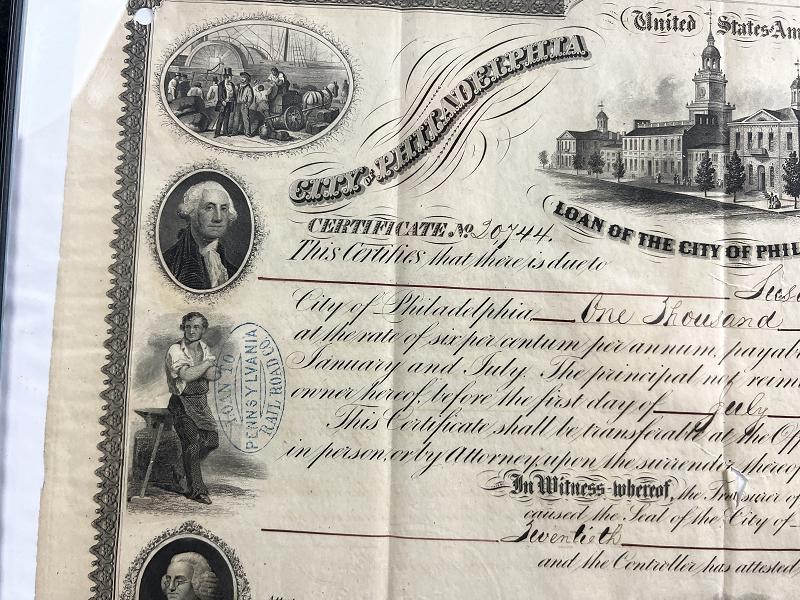 United States Am
CITY OF PHILADELPHIA
LOAN OF THE CITY OF PHIL
CERTIFICATE. No. 20744.
This Certifies that there is due to
City of Philadelphia One Thousand
at the rate of six per centum per annum, payab
January and July. The principal not reim
owner hereof, before the first day of July
This Certificate shall be transferable at the Off
in person, or by Attorney, upon the surrender thereof
In Witness whereof, the Treasurer of
caused the Seal of the City of
Twentieth
and the Controller has attested
LOAN TO
PENNSYLVANIA
RAIL ROAD CO.